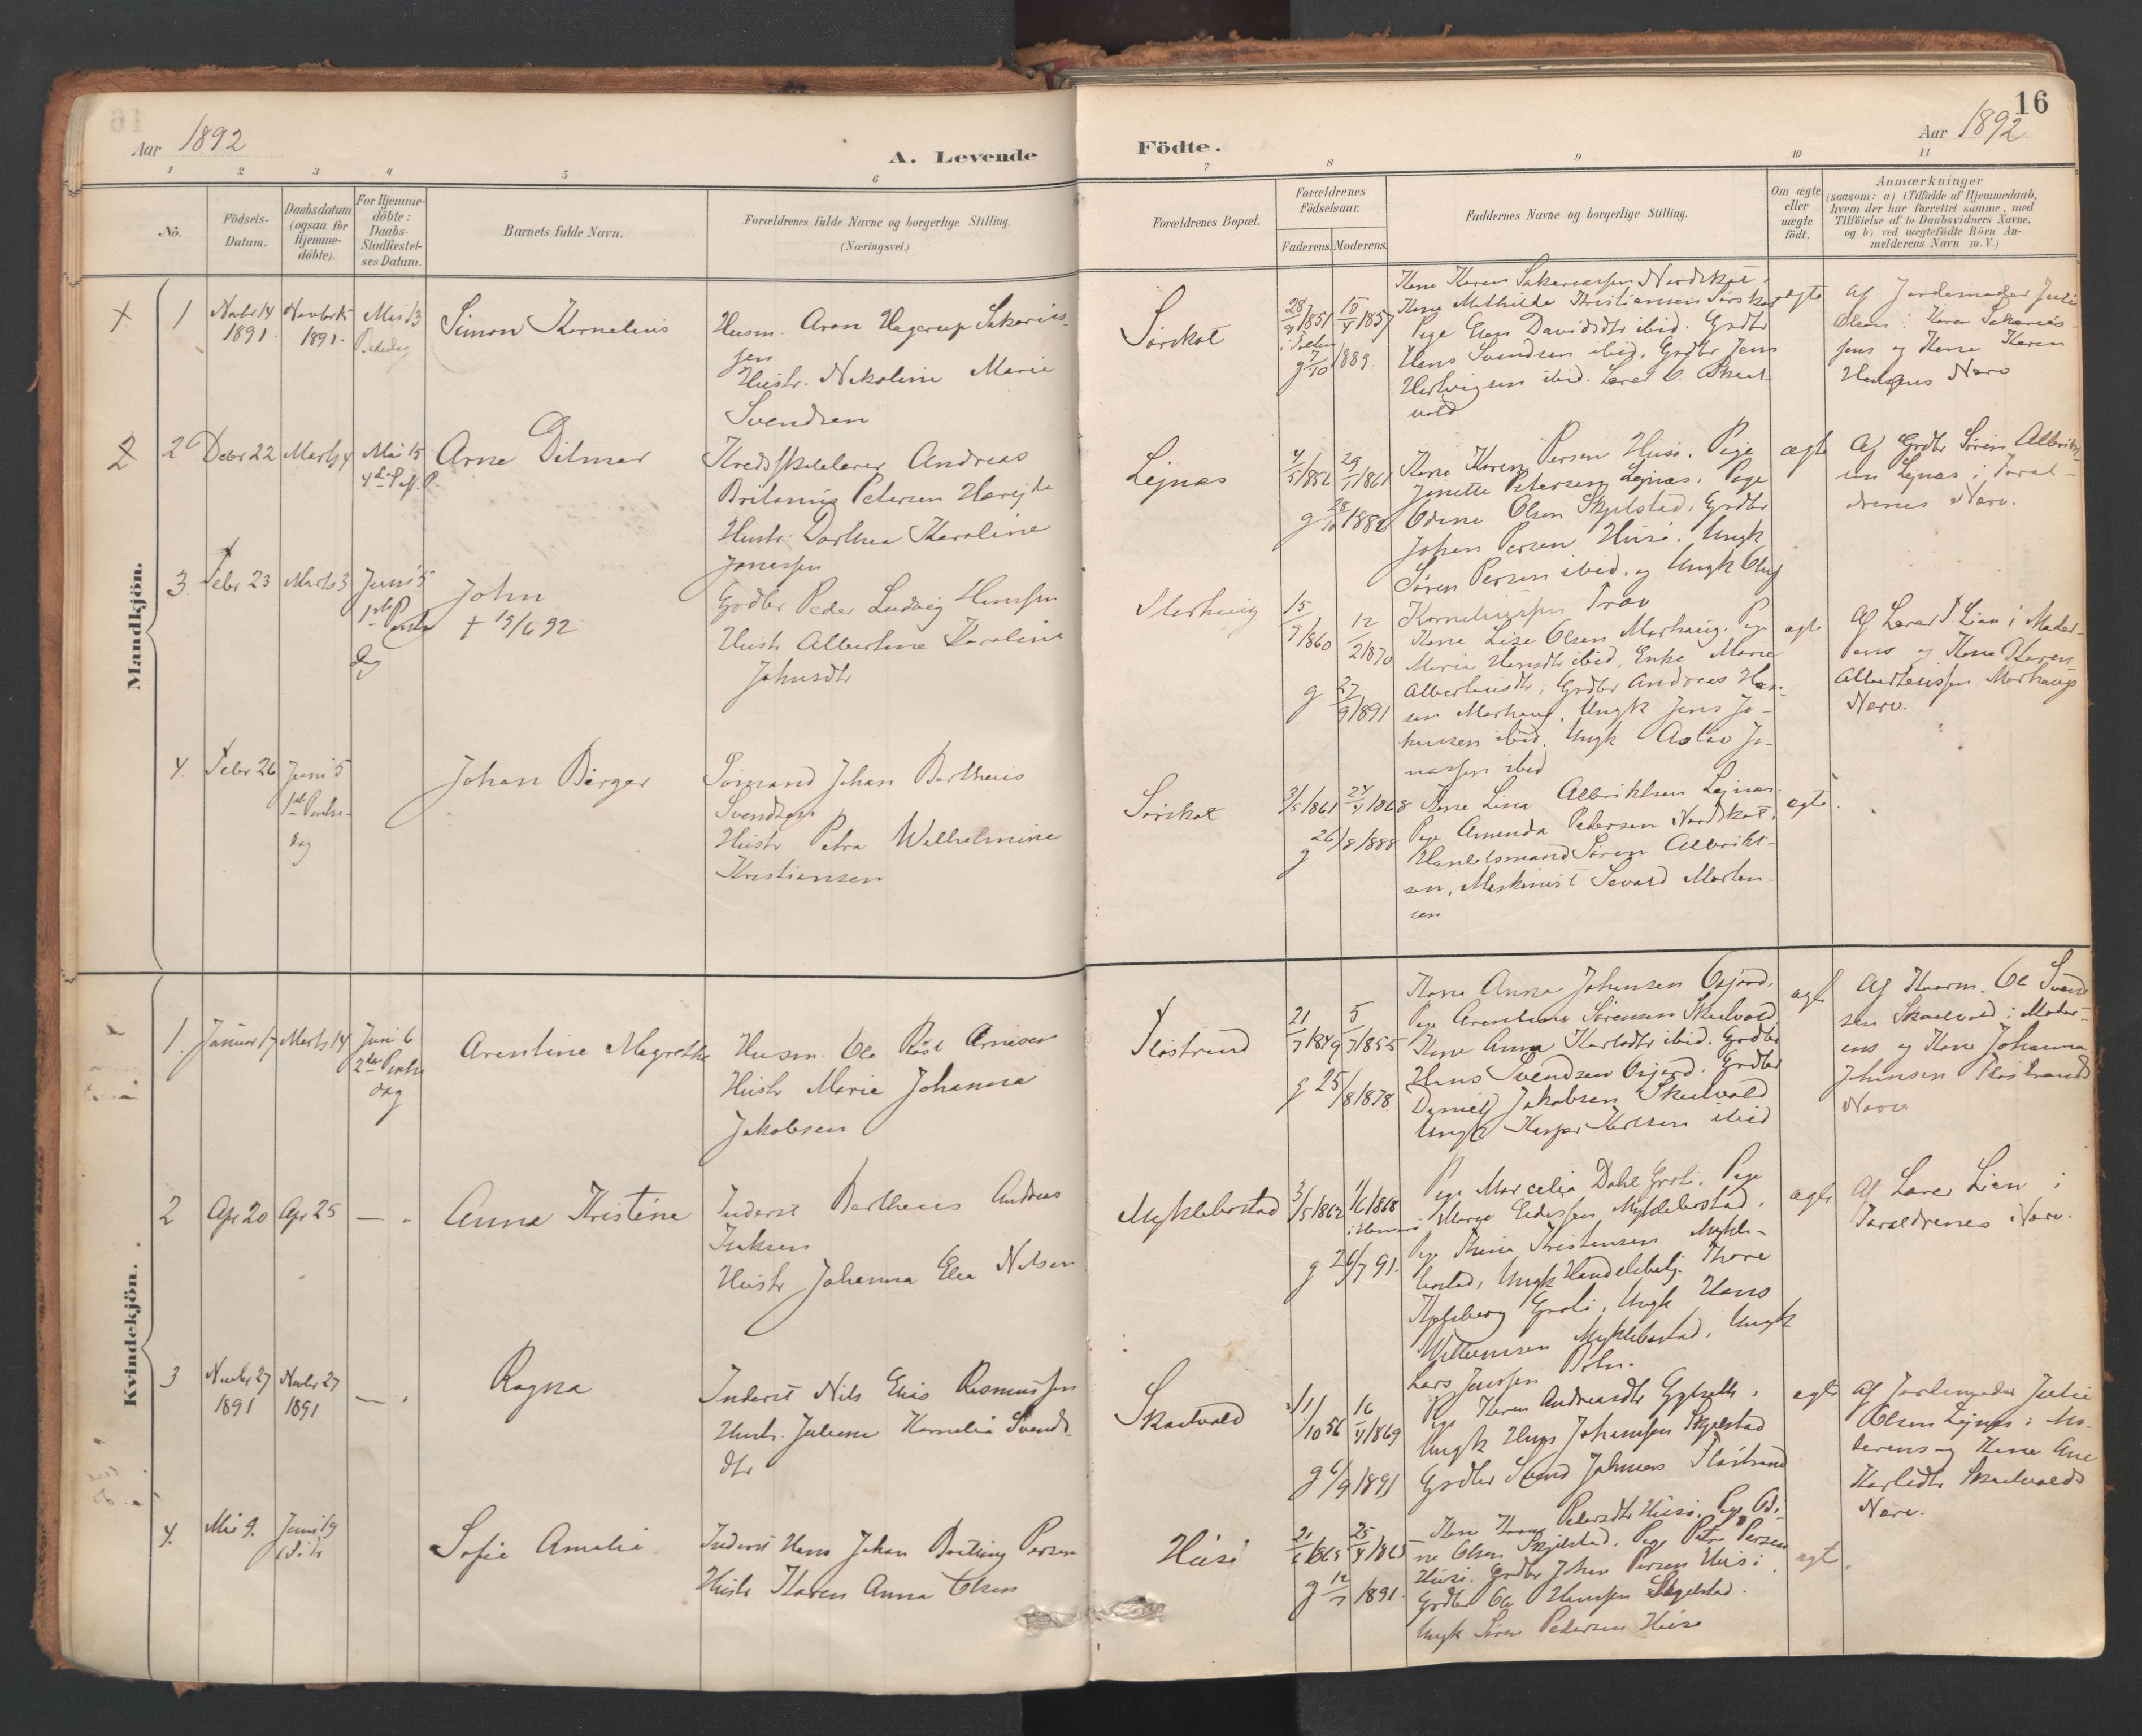 16
Aar 1892
A. Levende
Födte.
Aar 1892
1
2
3
4
5
6
7
8
9
10
11
No.
Födsels-
Datum.
Daabsdatum
(ogsaa for
Hjemme-
döbte).
For Hjemme-
döbte:
Daabs-
Stadfæstel-
ses Datum.
Barnets fulde Navn.
Forældrenes fulde Navne og borgerlige Stilling.
(Næringsvei.)
Forældrenes Bopæl.
Forældrenes
Födselsaar.
Faderens.
Moderens.
Faddernes Navne og borgerlige Stilling.
Om ægte
eller
uægte
födt.
Anmærkninger
(saasom: a) i Tilfælde af Hjemmedaab,
hvem der har forrettet samme, med
Tilföielse af to Daabsvidners Navne.
og b) ved uægtefödte Börn An-
melderens Navn m.V.)
Mandkjön.
1
Novbr 14
1891
1891.
Mai 13
Simon Kornelius
Husm. Aron Hagerup Sakarias-
sen
Hustr. Nikoline Marie
Svendsen
Sørskot
28
1851
1857
g 7/10 1889.
Kone Karen Sakariassen Nordskot,
Kone Mathilde Kristiansen Sørskot
Pige Elen Davidsdtr ibid. Grdbr
Hans Svendsen ibid. Grdbr Jens
Hertvigsen ibid. Lærer O. Skeat-
vold
ægte
Af Jordemoder Julie
Olsen i Karen Sakarias-
sens og Kone Karen
Nærv
2
2
Debr 22
Marts 4
Mai 15
Arne Ditmar
Kredsskolelærer Andreas
Petersen
Hustr. Dorthea Karoline
Jonassen
Lejnæs
4/5 1856
29/7 1861
g 28/10 1882
Kone Karen Persen Husø. Pige
Jonette Petersen Lejnæs. Pige
Odine Olsen Skjelstad, Grdbr
Johan Persen Husø. Ungk
Søren Persen ibid. og Ungk Oluf
Korneliussen
ægte
Af Grdbr Søren Albrikt-
sen Lejnæs i Foræl-
drenes Nærv.
3.
Febr 23
Marts 3
Juni 5
1ste Pinse
dag
John
† 15/6 92
Grdbr Peder Ludvig Hansen
Hustr Albertine Karoline
Johnsdtr
Mørhaug
15/9 1860
12/2 1870
g 27/9 1891
Kone Lise Olsen Mørhaug. Pige
Marie Hansdtr ibid, Enke Marie
Albertinsdtr, Grdbr Andreas Han-
sen Mørhaug, Ungk Jens Jo-
hansen ibid. Ungk Aslav Jo-
nassen ibid
ægte
Af Lærer P. Lian i Moder-
ens og Kone Karen
Albertinussen Mørhaugs
Nærv.
4.
Febr 26
Juni 5
1ste Pinse-
dag
Johan Birger
Sömand Johan Bertheus
Svendsen
Hustr Petra Wilhelmine
Kristiansen
Sørskot
3/5 1861
24/4 1868
g 26/8 1888
Kone Lina Albriktsen Lejnæs.
Pige Amanda Pedersen Nordskot.
Handelsmand Søren Albrikt-
sen, Maskinist Sevald Morten-
sen
ægte
Kvindekjön.
1.
Januar 17
Marts 14
Juni 6
2den Pinse
dag
Arentine Magrethe
Husm. Ole Røst Arnesen
Hustr Marie Johanna
Jakobsen
Fløstrand
21/7 1849
5/7 1855
g 25/8 1878
Kone Anna Johansen
Pige Arentine Sørensen Skutvold
Kone Anna Karlsdtr ibid. Grdbr
Hans Svendsen Grdbr
Daniel Jakobsen Skutvold
Ungk Kaspar Karlsen ibid
ægte
Af Husm. Ole Svend-
sen Skutvold i Moder-
ens og Kone Johanna
Johnsen Fløstrands
Nærv
2
Apr 20
Apr 25
— .
Anna Kristine
Inderst Bertheus Andreas
Isaksen
Hustr Johanna Elea Nilsen
Myklebostad
3/5 1862
1/6 1868
g 26/7 91.
Pige Marcelia Dahl Grøtø. Pige
Myklebostad,
Pige Trine Kristensen Mykle-
bostad, Ungk Handelsbetj. Thore
Grøtø, Ungk Hans
Willumsen Myklebostad, Ungk
Lars Jensen
ægte
Af Lærer Lian i
Forældrenes Nærv.
3
Novbr 27
1891
Novbr 27
1891
— .
Ragna
Inderst Nils Elias Rasmussen
Hustr. Juliane Kornelia Svends-
dtr
Skutvold
11/10 56
16/4 1869
g 6/9 1891
Pige Karen Andreasdtr
Ungk Hans Johansen Skjelstad
Grdbr Svend Johnsen Fløstrand
ægte
Af Jordemoder Julie
Olsen Lejnæs i Mo-
derens og Kone Ane
Karlsdtr Skutvolds
Nærv.
4.
Mai 9.
Juni 19
Sofie Amalie
Inderst Hans Johan Persen
Hustr Karen Anna Olsen
Husø
21/6 1865
25/4 1865
g 12/7 1891.
Kone Karen Pedersdtr Husø. Pige Odi-
ne Olsen Skjelstad, Pige Petra Persen
Husø. Grdbr Johan Persen Husø
Grdbr Ole Hansen Skjelstad.
Ungk Søren Pedersen Husø
ægte.